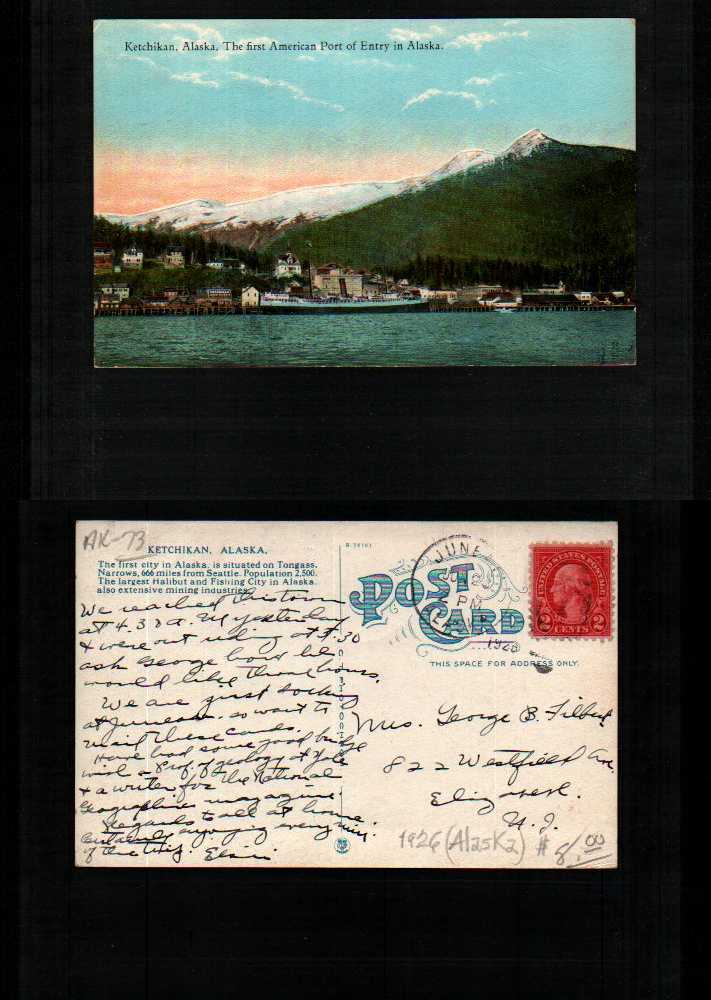 Ketchikan, Alaska, The first American Port of Entry in Alaska.
AK-73
KETCHIKAN, ALASKA.
The first city in Alaska, is situated on Tongass
Narrows, 666 miles from Seattle. Population 2,500.
The largest Halibut and Fishing City in Alaska.
also extensive mining industries.
We reached this town
at 4.30 a.m yesterday
& were out riding at 4.30
ask George how he
would like those hours.
We are just docking
at Juneau. so want to
mail these cards.
Have had some good bridge
with a Prof of geology at Yale
& a writer for the National
Geographic magazine.
Regards to all at home.
Certainly enjoying every min.
of the trip.
POST
CARD
JUNE
PM
1926
UNITED STATES POSTAGE
2 CENTS 2
THIS SPACE FOR ADDRESS ONLY.
Mrs. George B. Filbert
822 Westfield Ave.
Elizabeth.
N. J.
1926 (Alaska) # 8/